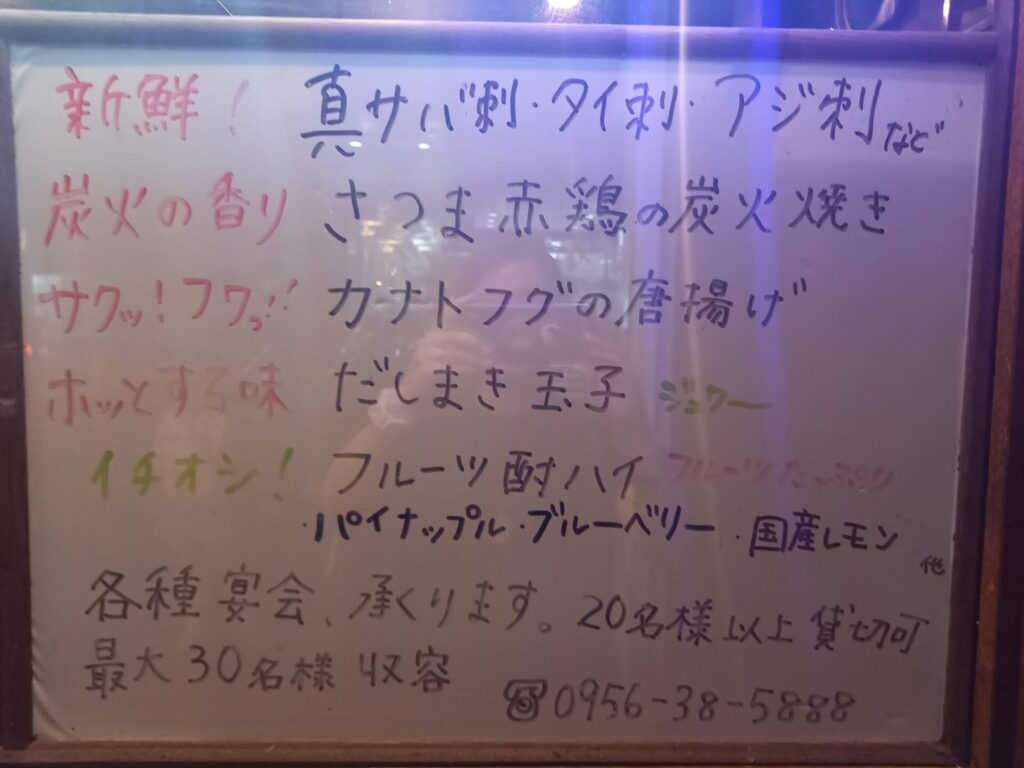 新鮮! 真サバ刺・タイ刺・アジ刺など
炭火の香り さつま赤鶏の炭火焼き
サクッ!フワっ!! カナトフグの唐揚げ
ホッとする味 だしまき玉子 ジュワー
イチオシ! フルーツ酎ハイ フルーツたっぷり
・パイナップル・ブルーベリー・国産レモン 他
各種宴会、承くります。20名様以上貸切可
最大30名様収容
☎0956-38-5888